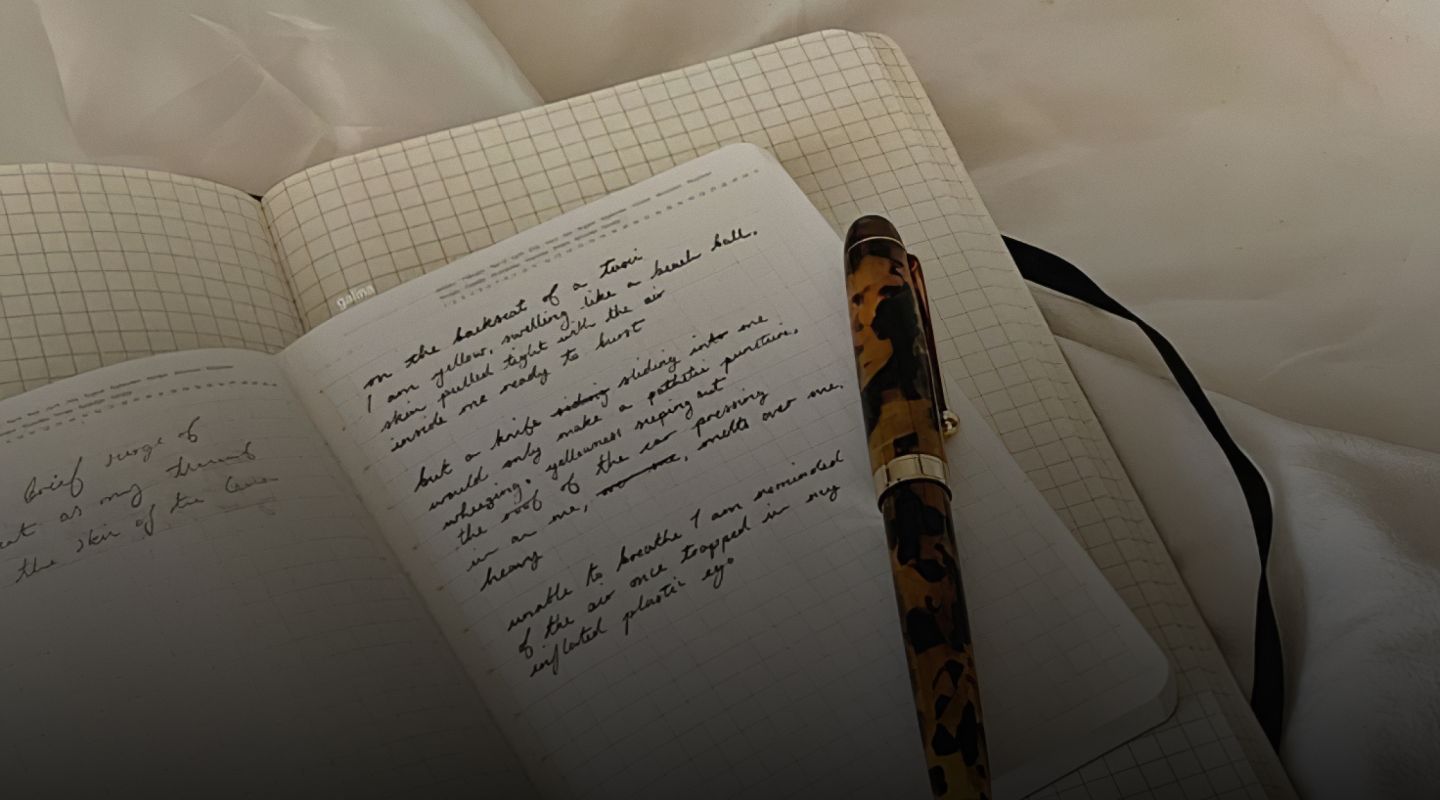 brief surge of
as my thumb
the skin of the
galma
on the backseat of a taxi
I am yellow, swelling like a beach ball.
skin pulled tight with the air
inside me ready to burst
but a knife sliding into me
would only make a pathetic puncture,
wheezing, yellowness seeping out
the roof of the car pressing
in on me, melts over me,
heavy
unable to breathe I am reminded
of the air once trapped in my
inflated plastic ego